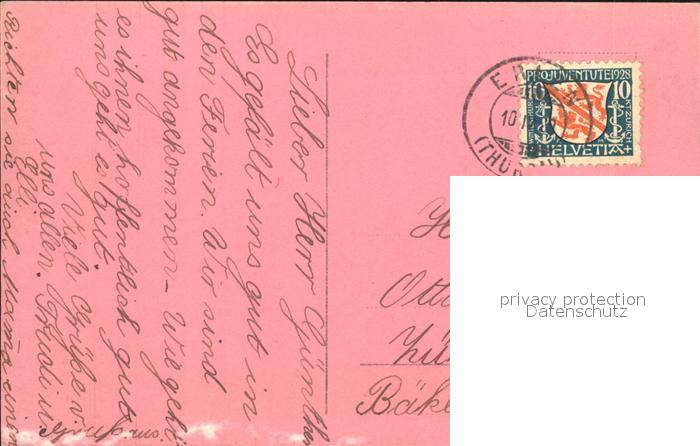 Lieber Herr Günth
Es gefällt uns gut in
den Ferien. Wir sind
gut angekommen. Wie geht
es ihnen, hoffentlich gut
uns geht es gut.
Viele Grüße v
uns allen. Trudi u
Elli
Richten sie auch Mama ein
PRO JUVENTUTE 1928
10 10
KT. ZÜRICH
HELVETIA
10
(THUR
H
Otto
Zü
Bäke
privacy protection
Datenschutz